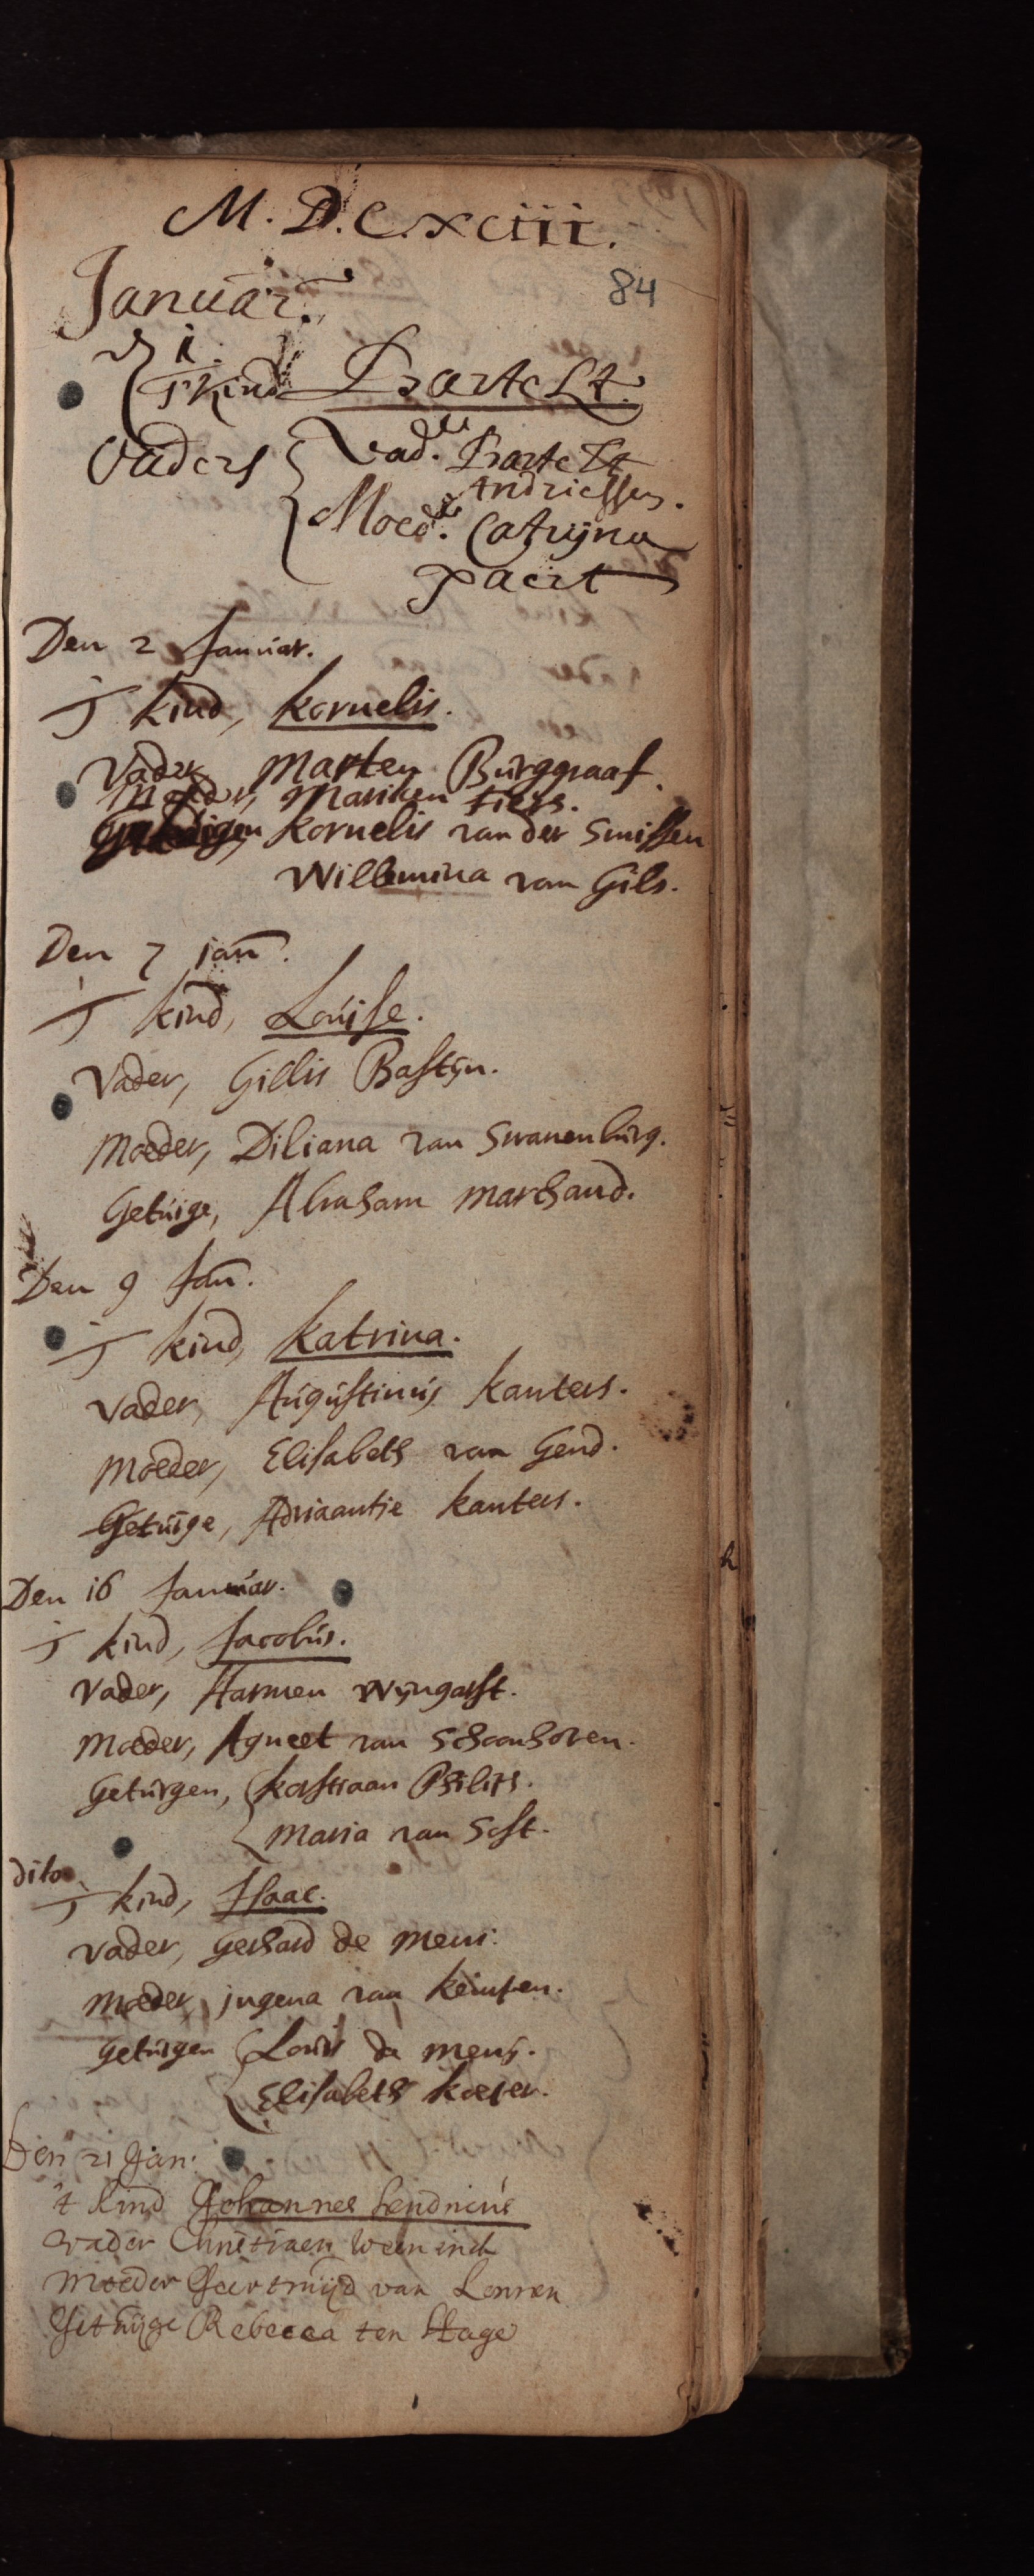 M.D.C.XCIII.
84
Januar.
i.
't kind Bartelt.
Vaders Vad.er Bartelt
Andriessen.
Moed.er Catrijna
paert
Den 2 Januar.
't kind, Kornelis.
Vader, Marten Burggraaf.
Moeder, Mariken Fiers.
Kornelis van der Smissen
Willemina van Gils.
Den 7 jan.
't kind, Louise.
Vader, Gillis Bastijn.
Moeder, Diliana van Swanenburg.
Getuige, Abraham Marchand.
Den 9 Jan.
't kind, Katrina.
Vader, Augustinus Kanters.
Moeder, Elisabeth van Gend.
Getuige, Adriaantje Kanters.
Den 16 Januar.
't kind, Jacobus.
Vader, Harmen Wijngarst.
Moeder, Agneet van Schoonhoven.
Getuigen, Korstiaan Philips.
Maria van Sost.
dito
't kind, Isaac.
Vader, Gerhard de Meni.
Moeder, jngena van Kempen.
getuigen Louis de Meni.
Elisabeth Koeper.
Den 21 Jan:
't kind Johannes Hendricus
vader Christiaen Weenink
Moeder Geertruijd van Lennen
Getuijge Rebecca ten Hage